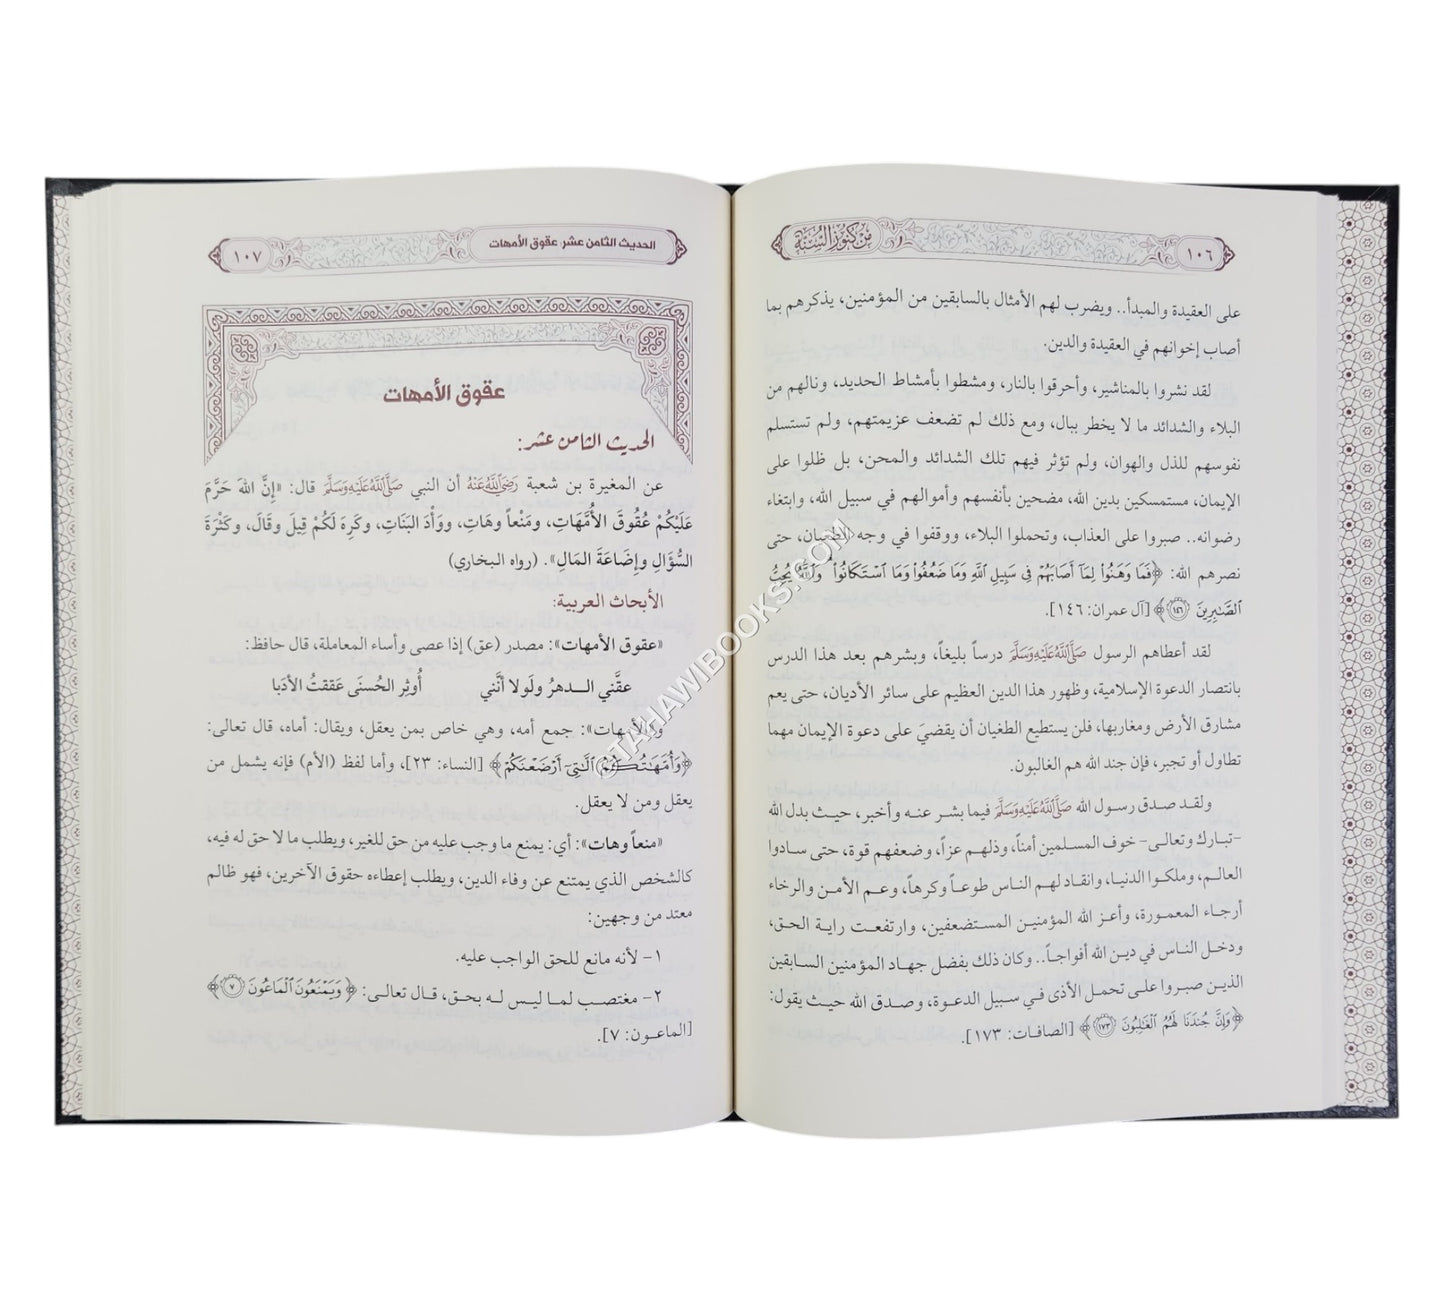 ١٠٦
من كنوز السنة
على العقيدة والمبدأ.. ويضرب لهم الأمثال بالسابقين من المؤمنين، يذكرهم بما
أصاب إخوانهم في العقيدة والدين.
لقد نشروا بالمناشير، وأحرقوا بالنار، ومشطوا بأمشاط الحديد، ونالهم من
البلاء والشدائد ما لا يخطر ببال، ومع ذلك لم تضعف عزيمتهم، ولم تستسلم
نفوسهم للذل والهوان، ولم تؤثر فيهم تلك الشدائد والمحن، بل ظلوا على
الإيمان، مستمسكين بدين الله، مضحين بأنفسهم وأموالهم في سبيل الله، وابتغاء
رضوانه.. صبروا على العذاب، وتحملوا البلاء، ووقفوا في وجه الطغيان، حتى
نصرهم الله: ﴿فَمَا وَهَنُوا۟ لِمَآ أَصَابَهُمْ فِى سَبِيلِ ٱللَّهِ وَمَا ضَعُفُوا۟ وَمَا ٱسْتَكَانُوا۟ وَٱللَّهُ يُحِبُّ
ٱلصَّـٰبِرِينَ ١٤٦﴾ [آل عمران: ١٤٦].
لقد أعطاهم الرسول صَلَّى اللَّهُ عَلَيْهِ وَسَلَّمَ درساً بليغاً، وبشرهم بعد هذا الدرس
بانتصار الدعوة الإسلامية، وظهور هذا الدين العظيم على سائر الأديان، حتى يعم
مشارق الأرض ومغاربها، فلن يستطيع الطغيان أن يقضيَ على دعوة الإيمان مهما
تطاول أو تجبر، فإن جند الله هم الغالبون.
ولقد صدق رسول الله صَلَّى اللَّهُ عَلَيْهِ وَسَلَّمَ فيما بشر عنه وأخبر، حيث بدل الله
-تبارك وتعالى- خوف المسلمين أمناً، وذلهم عزاً، وضعفهم قوة، حتى سادوا
العالم، وملكوا الدنيا، وانقاد لهم الناس طوعاً وكرهاً، وعم الأمن والرخاء
أرجاء المعمورة، وأعز الله المؤمنين المستضعفين، وارتفعت راية الحق،
ودخل الناس في دين الله أفواجاً.. وكان ذلك بفضل جهاد المؤمنين السابقين
الذين صبروا على تحمل الأذى في سبيل الدعوة، وصدق الله حيث يقول:
﴿وَإِنَّ جُندَنَا لَهُمُ ٱلْغَـٰلِبُونَ ١٧٣﴾ [الصافات: ١٧٣].
الحديث الثامن عشر: عقوق الأمهات
١٠٧
عقوق الأمهات
الحديث الثامن عشر:
عن المغيرة بن شعبة رَضِيَ اللَّهُ عَنْهُ أن النبي صَلَّى اللَّهُ عَلَيْهِ وَسَلَّمَ قال: «إِنَّ اللهَ حَرَّمَ
عَلَيْكُمْ عُقُوقَ الأُمَّهَاتِ، ومَنْعاً وهَاتِ، ووَأْدَ البَنَاتِ، وكَرِهَ لَكُمْ قِيلَ وقَالَ، وكَثْرَةَ
السُّؤَالِ وإِضَاعَةَ المَالِ». (رواه البخاري)
الأبحاث العربية:
«عقوق الأمهات»: مصدر (عق) إذا عصى وأساء المعاملة، قال حافظ:
عقَّني الـدهرُ ولَولا أنَّني أُوثِر الحُسنَى عَققتُ الأدَبا
و«الأمهات»: جمع أمه، وهي خاص بمن يعقل، ويقال: أماه، قال تعالى:
﴿وَأُمَّهَـٰتُكُمُ ٱلَّـٰتِىٓ أَرْضَعْنَكُمْ﴾ [النساء: ٢٣]، وأما لفظ (الأم) فإنه يشمل من
يعقل ومن لا يعقل.
«منعاً وهات»: أي: يمنع ما وجب عليه من حق للغير، ويطلب ما لا حق له فيه،
كالشخص الذي يمتنع عن وفاء الدين، ويطلب إعطاءه حقوق الآخرين، فهو ظالم
معتد من وجهين:
١- لأنه مانع للحق الواجب عليه.
٢- مغتصب لما ليس له بحق، قال تعالى: ﴿وَيَمْنَعُونَ ٱلْمَاعُونَ ٧﴾
[الماعون: ٧].
©TAHAWIBOOKS.COM